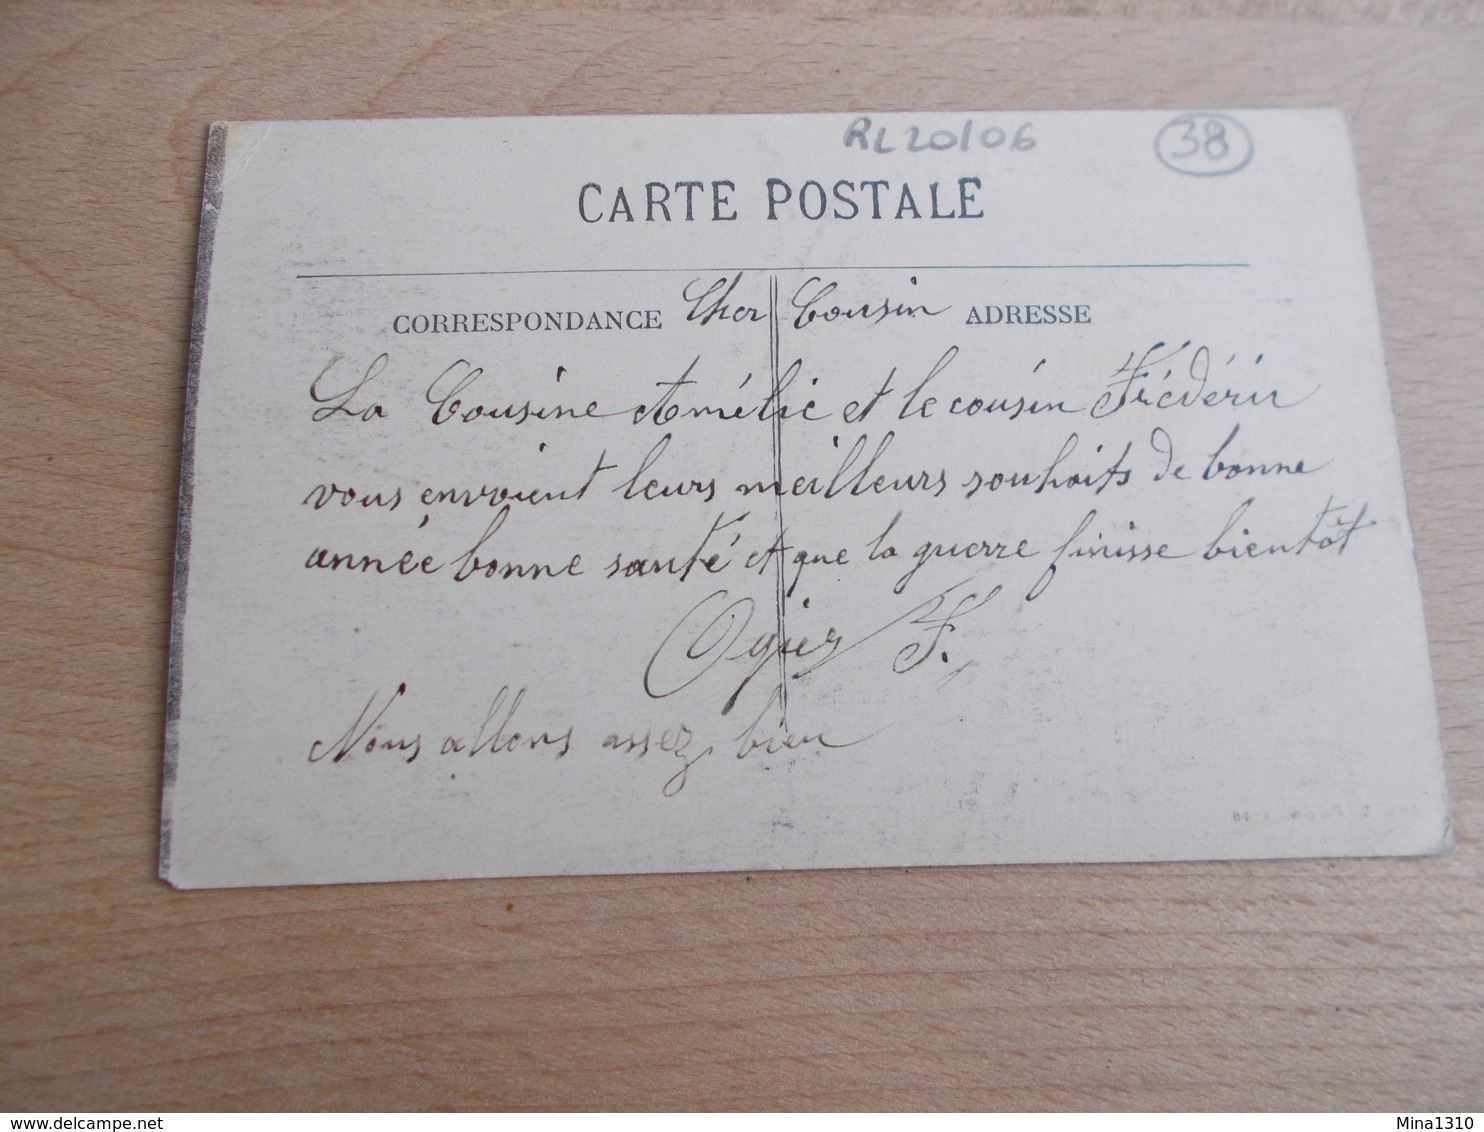 RL20/06 38
CARTE POSTALE
CORRESPONDANCE Cher Cousin ADRESSE
La Cousine Amélie et le cousin Frédéric
vous envoient leurs meilleurs souhaits de bonne
année bonne santé et que la guerre finisse bientôt
Ogier F.
Nous allons assez bien
Mina1310